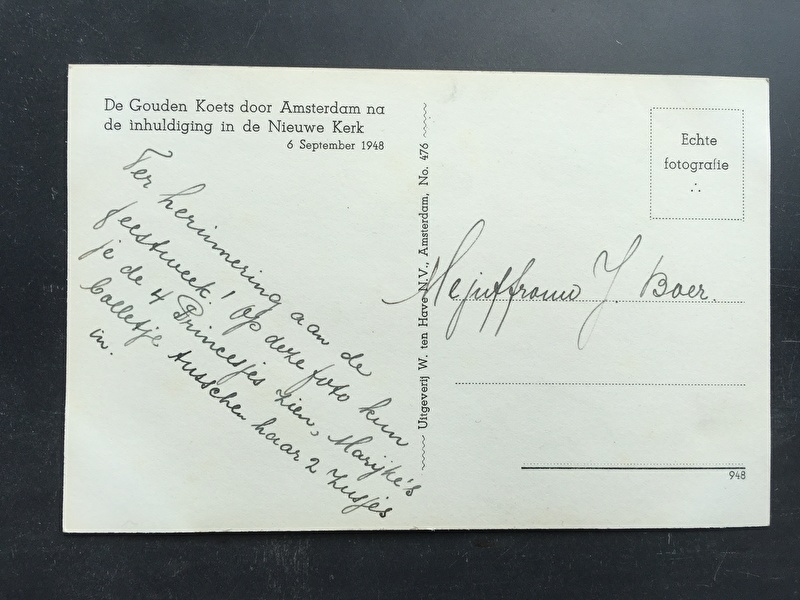 De Gouden Koets door Amsterdam na
de inhuldiging in de Nieuwe Kerk
6 September 1948
Ter herinnering aan de
feestweek! Op deze foto kun
je de 4 Prinsesjes zien, Marijke's
bolletje tusschen haar 2 zusjes
in.
Uitgeverij W. ten Have N.V., Amsterdam, No. 476
Echte
fotografie
Mejuffrouw J. Boer.
948